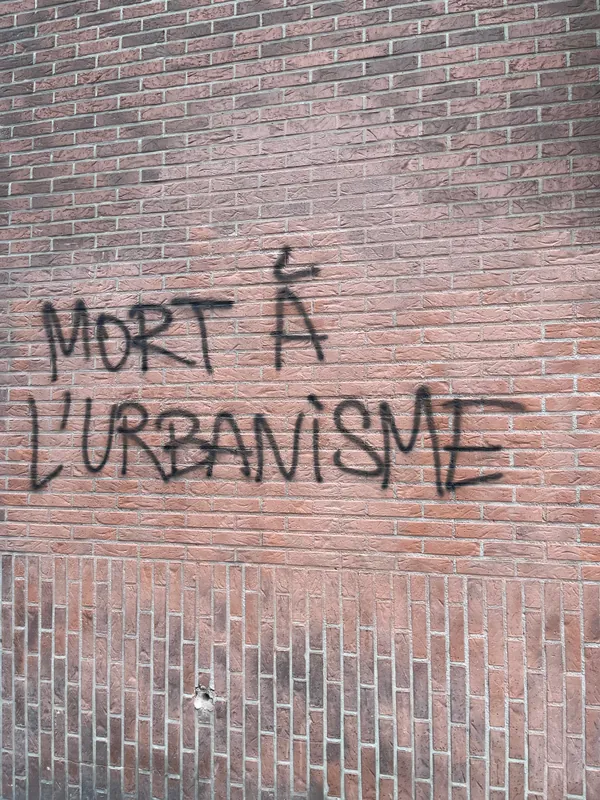 MORT À
L'URBANiSME